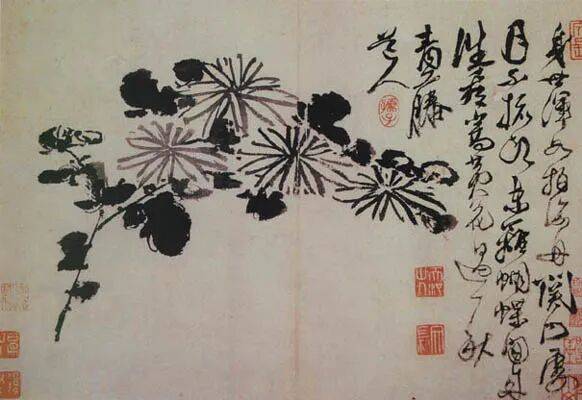 身世渾如拍海舟関門累
月不梳頭東籬蝴蝶閒来
往看寫黄花過一秋
青藤
道人